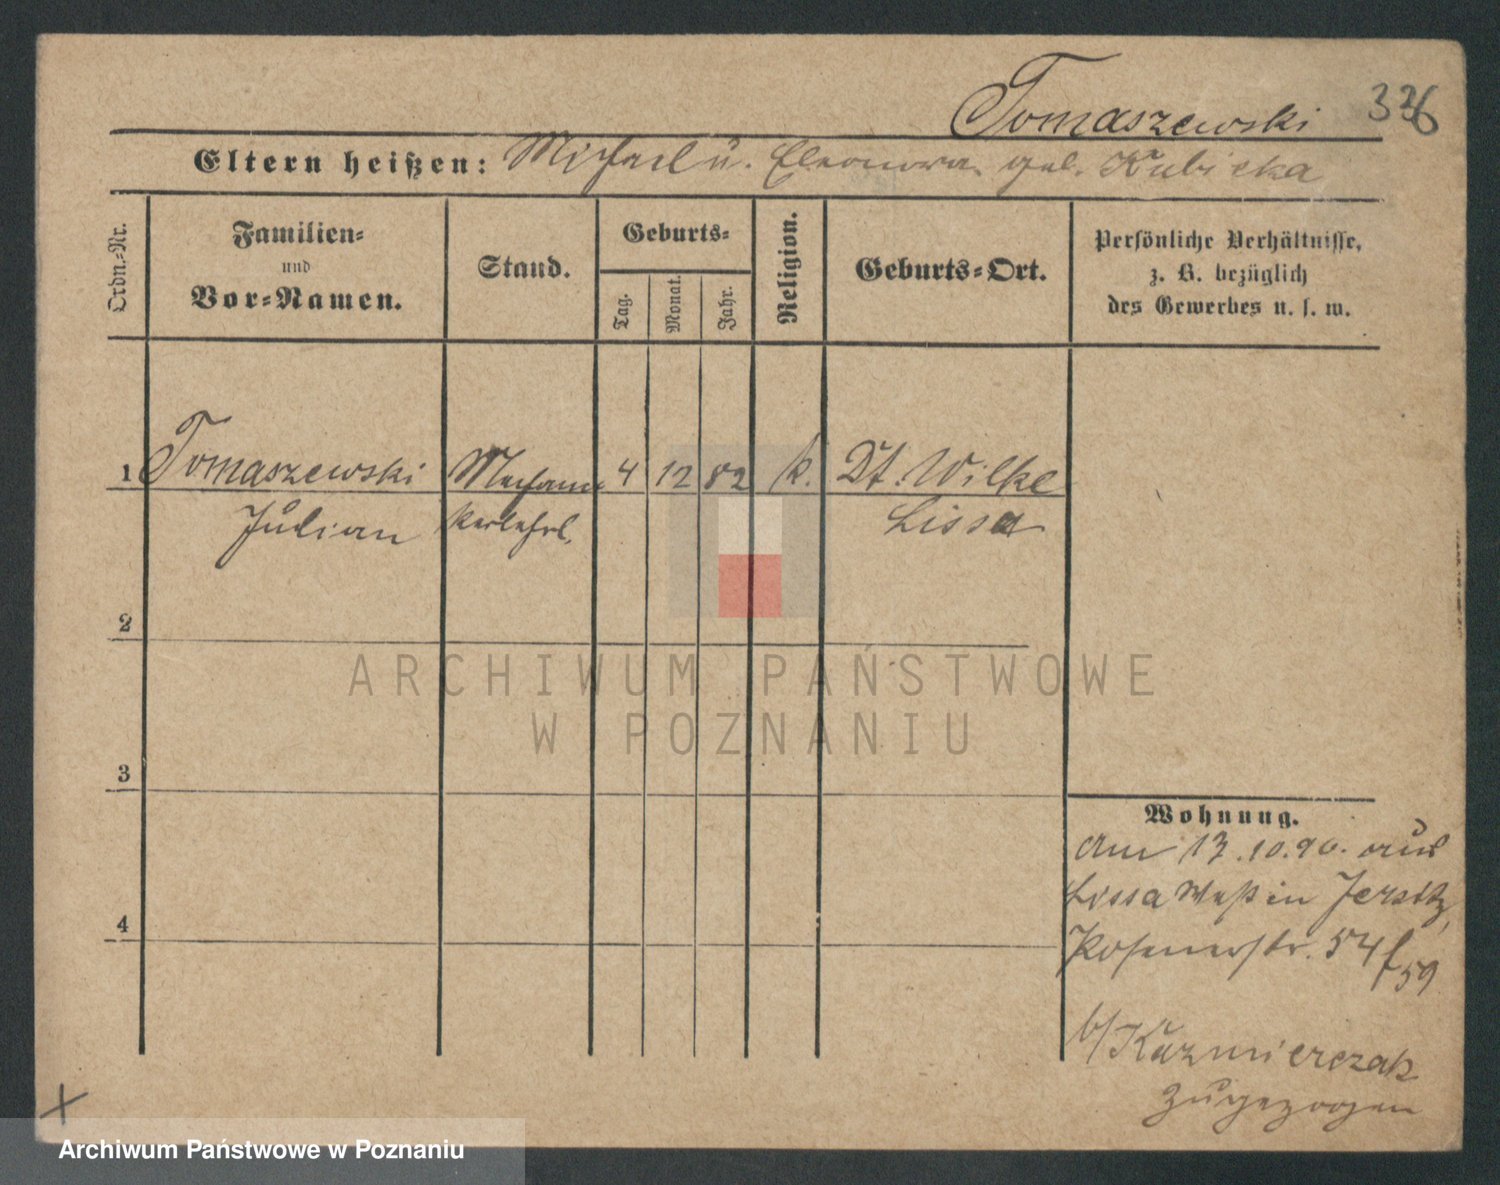 Tomaszewski
326
Eltern heißen: Michael u. Eleonora geb. Kubicka
Ordn.-Nr.
Familien-
und
Vor-Namen.
Stand.
Geburts-
Tag.
Monat.
Jahr.
Religion.
Geburts-Ort.
Persönliche Verhältnisse,
z. B. bezüglich
des Gewerbes u. s. w.
1 Tomaszewski 4 12 82 k. Dt. Wilke
Julian Lissa
2
3
4
ARCHIWUM PAŃSTWOWE
W POZNANIU
Wohnung.
Am 17.10.96. aus
Lissa in Jersitz,
Posenerstr. 54/59
b/ Kazmierczak
zugezogen
Archiwum Państwowe w Poznaniu